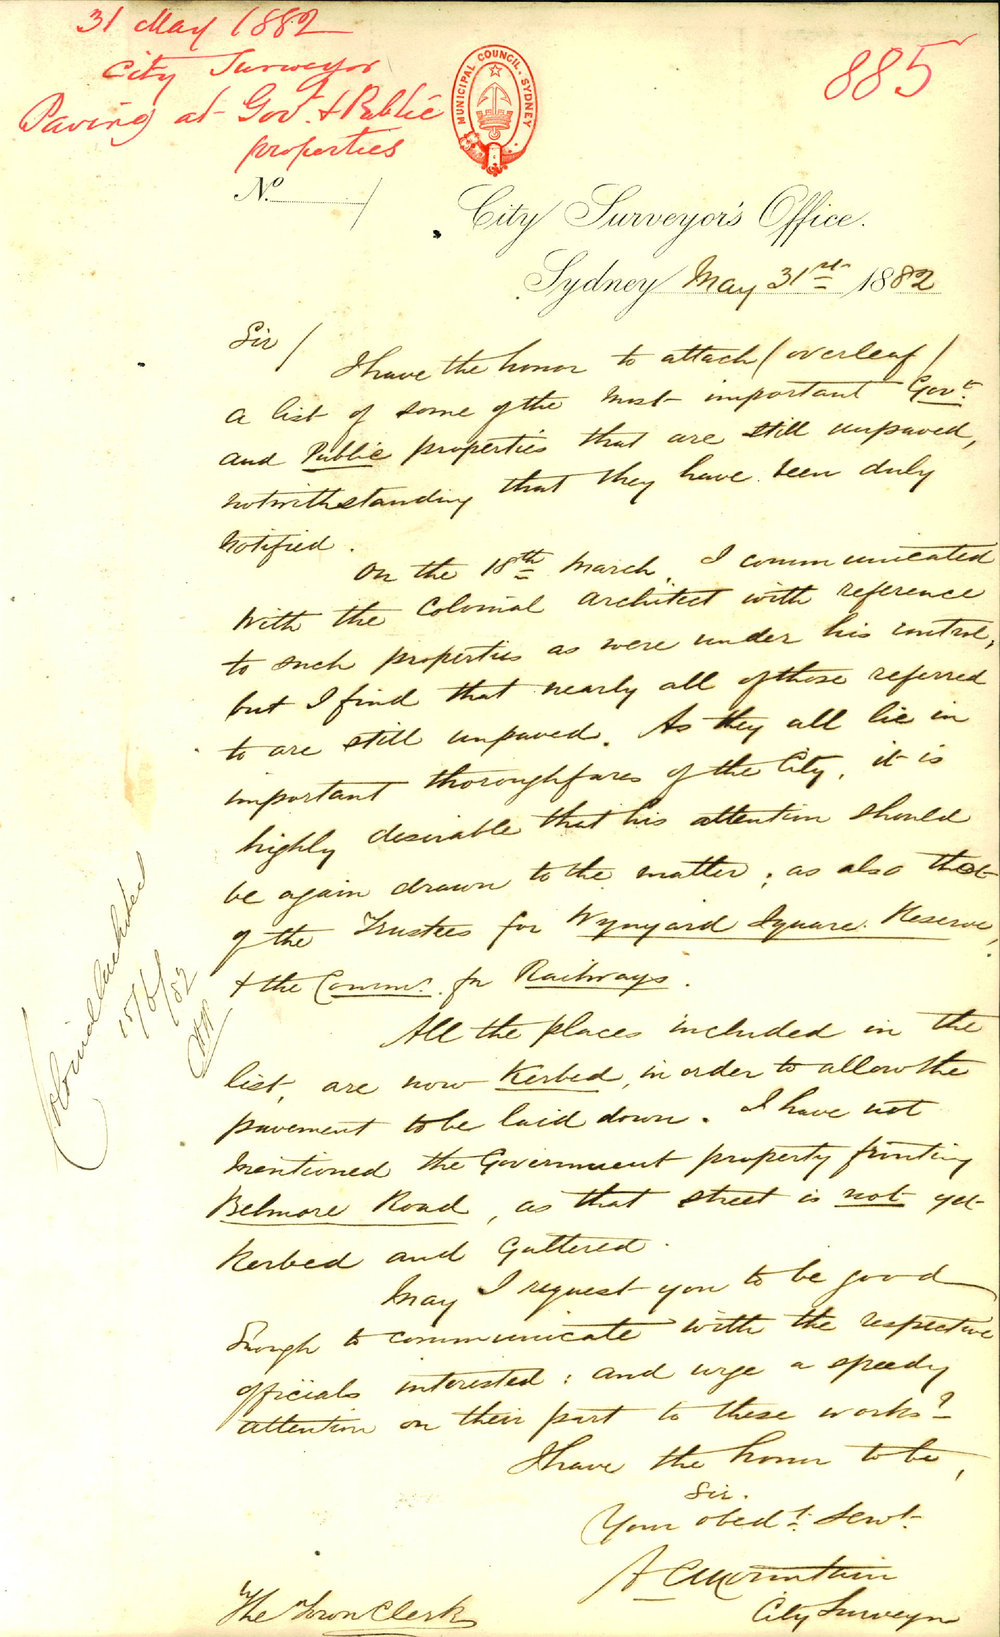 31 May 1882
City Surveyor
Paving at Gov.t & Public
properties
885
MUNICIPAL COUNCIL. SYDNEY
No.
City Surveyor's Office.
Sydney May 31st 1882
Sir /
I have the honor to attach (overleaf)
a list of some of the most important Govt.
and Public properties that are still unpaved,
notwithstanding that they have been duly
notified.
On the 18th March, I communicated
with the Colonial Architect with reference
to such properties as were under his control,
but I find that nearly all of those referred
to are still unpaved. As they all lie in
important thoroughfares of the City, it is
highly desirable that his attention should
be again drawn to the matter; as also that
of the Trustees for Wynyard Square Reserve,
& the Commr. for Railways.
All the places included in the
list, are now Kerbed, in order to allow the
pavement to be laid down. I have not
mentioned the Government property fronting
Belmore Road, as that street is not yet
Kerbed and Guttered.
May I request you to be good
Enough to communicate with the respective
officials interested: and urge a speedy
attention on their part to these works?
I have the honor to be,
Sir.
Your obedt. Servt.
A C Mountain
City Surveyor
The Town Clerk
Colonial Architect
15/6/82